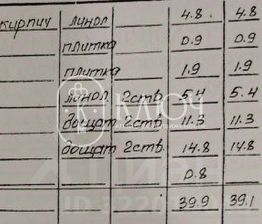 кирпич линол 4.8 4.8
плитка 0.9 0.9
плитка 1.9 1.9
линол 2ств. 5.4 5.4
дощат 2ств. 11.3 11.3
дощат 2ств. 14.8 14.8
0.8
39.9 39.1
КЛЮЧ